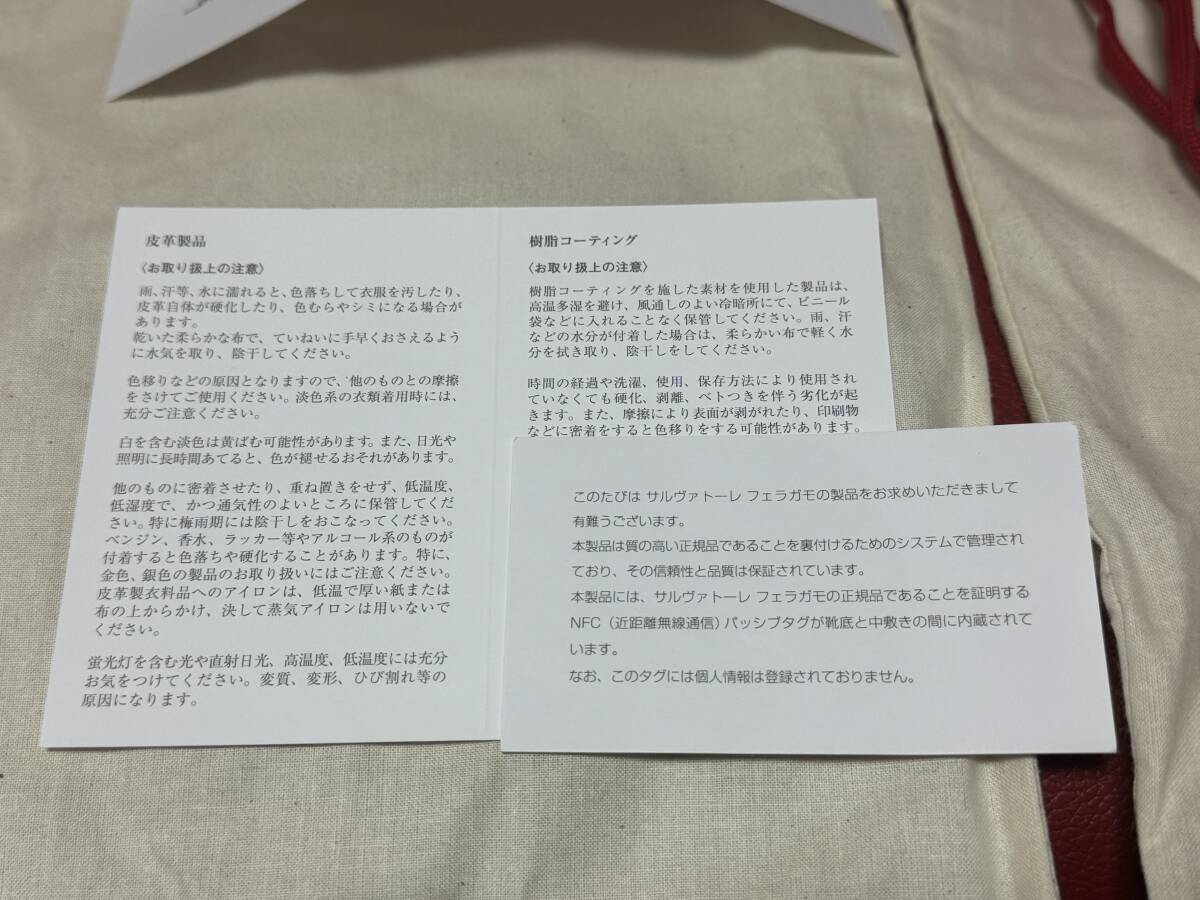 皮革製品
〈お取り扱上の注意〉
雨、汗等、水に濡れると、色落ちして衣服を汚したり、
皮革自体が硬化したり、色むらやシミになる場合が
あります。
乾いた柔らかな布で、ていねいに手早くおさえるよう
に水気を取り、陰干してください。
色移りなどの原因となりますので、他のものとの摩擦
をさけてご使用ください。淡色系の衣類着用時には、
充分ご注意ください。
白を含む淡色は黄ばむ可能性があります。また、日光や
照明に長時間あてると、色が褪せるおそれがあります。
他のものに密着させたり、重ね置きをせず、低温度、
低湿度で、かつ通気性のよいところに保管してくだ
さい。特に梅雨期には陰干しをおこなってください。
ベンジン、香水、ラッカー等やアルコール系のものが
付着すると色落ちや硬化することがあります。特に、
金色、銀色の製品のお取り扱いにはご注意ください。
皮革製衣料品へのアイロンは、低温で厚い紙または
布の上からかけ、決して蒸気アイロンは用いないで
ください。
蛍光灯を含む光や直射日光、高温度、低温度には充分
お気をつけてください。変質、変形、ひび割れ等の
原因になります。
樹脂コーティング
〈お取り扱上の注意〉
樹脂コーティングを施した素材を使用した製品は、
高温多湿を避け、風通しのよい冷暗所にて、ビニール
袋などに入れることなく保管してください。雨、汗
などの水分が付着した場合は、柔らかい布で軽く水
分を拭き取り、陰干しをしてください。
時間の経過や洗濯、使用、保存方法により使用され
ていなくても硬化、剥離、ベトつきを伴う劣化が起
きます。また、摩擦により表面が剥がれたり、印刷物
などに密着をすると色移りをする可能性があります。
このたびは サルヴァトーレ フェラガモの製品をお求めいただきまして
有難うございます。
本製品は質の高い正規品であることを裏付けるためのシステムで管理され
ており、その信頼性と品質は保証されています。
本製品には、サルヴァトーレ フェラガモの正規品であることを証明する
NFC（近距離無線通信）パッシブタグが靴底と中敷きの間に内蔵されて
います。
なお、このタグには個人情報は登録されておりません。